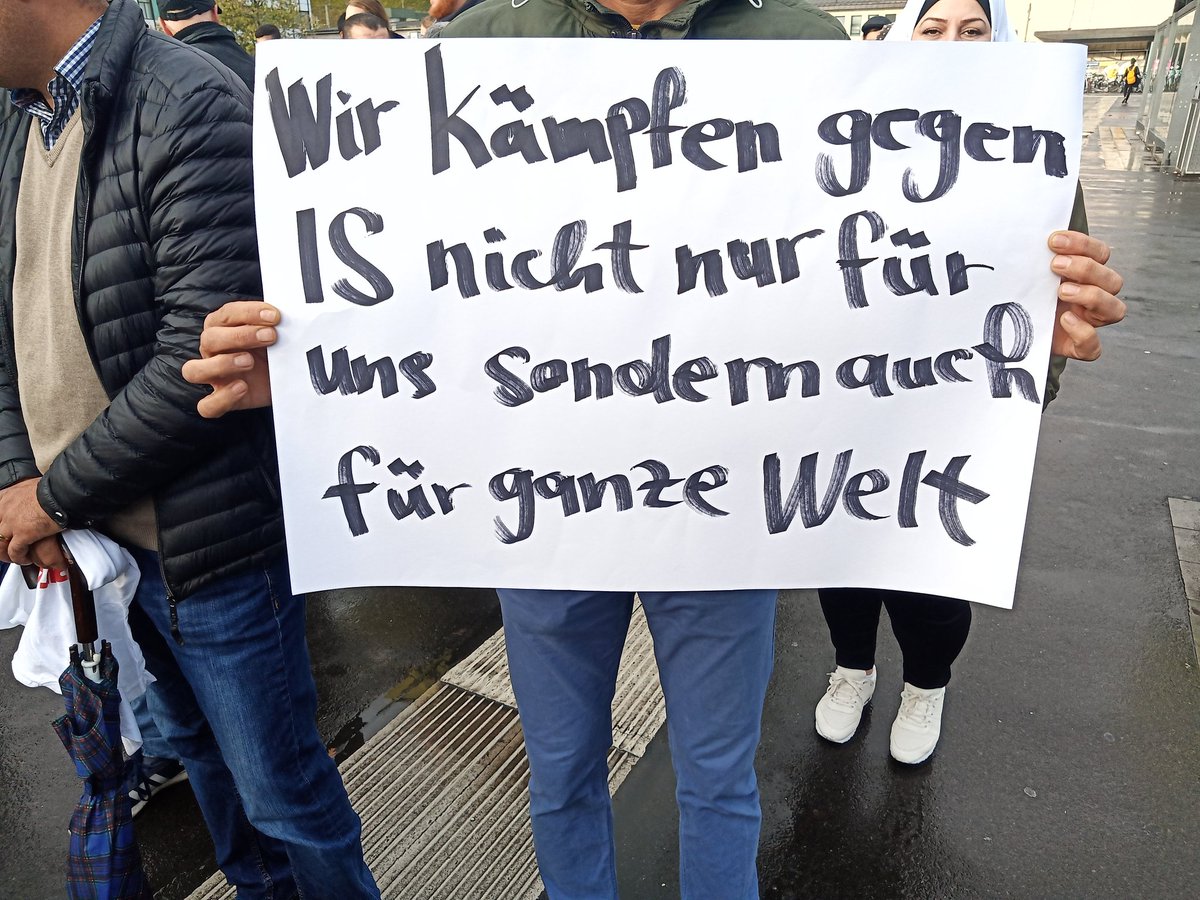 Wir kämpfen gegen
IS nicht nur für
uns sondern auch
für ganze Welt